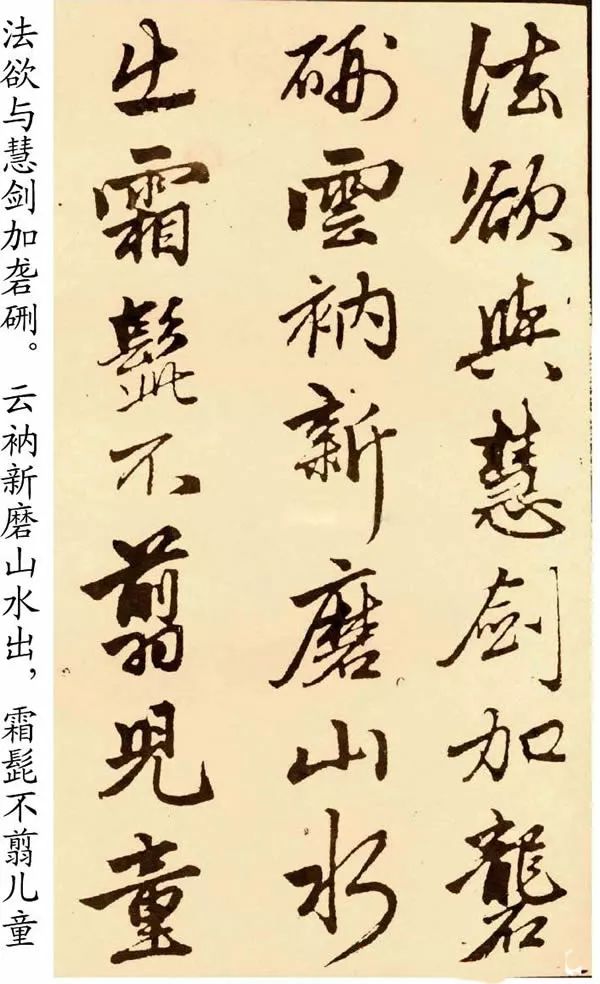 法欲與慧劍加礱
硎雲衲新磨山水
出霜髭不翦児童
法欲与慧剑加砻硎。云衲新磨山水出，霜髭不翦儿童